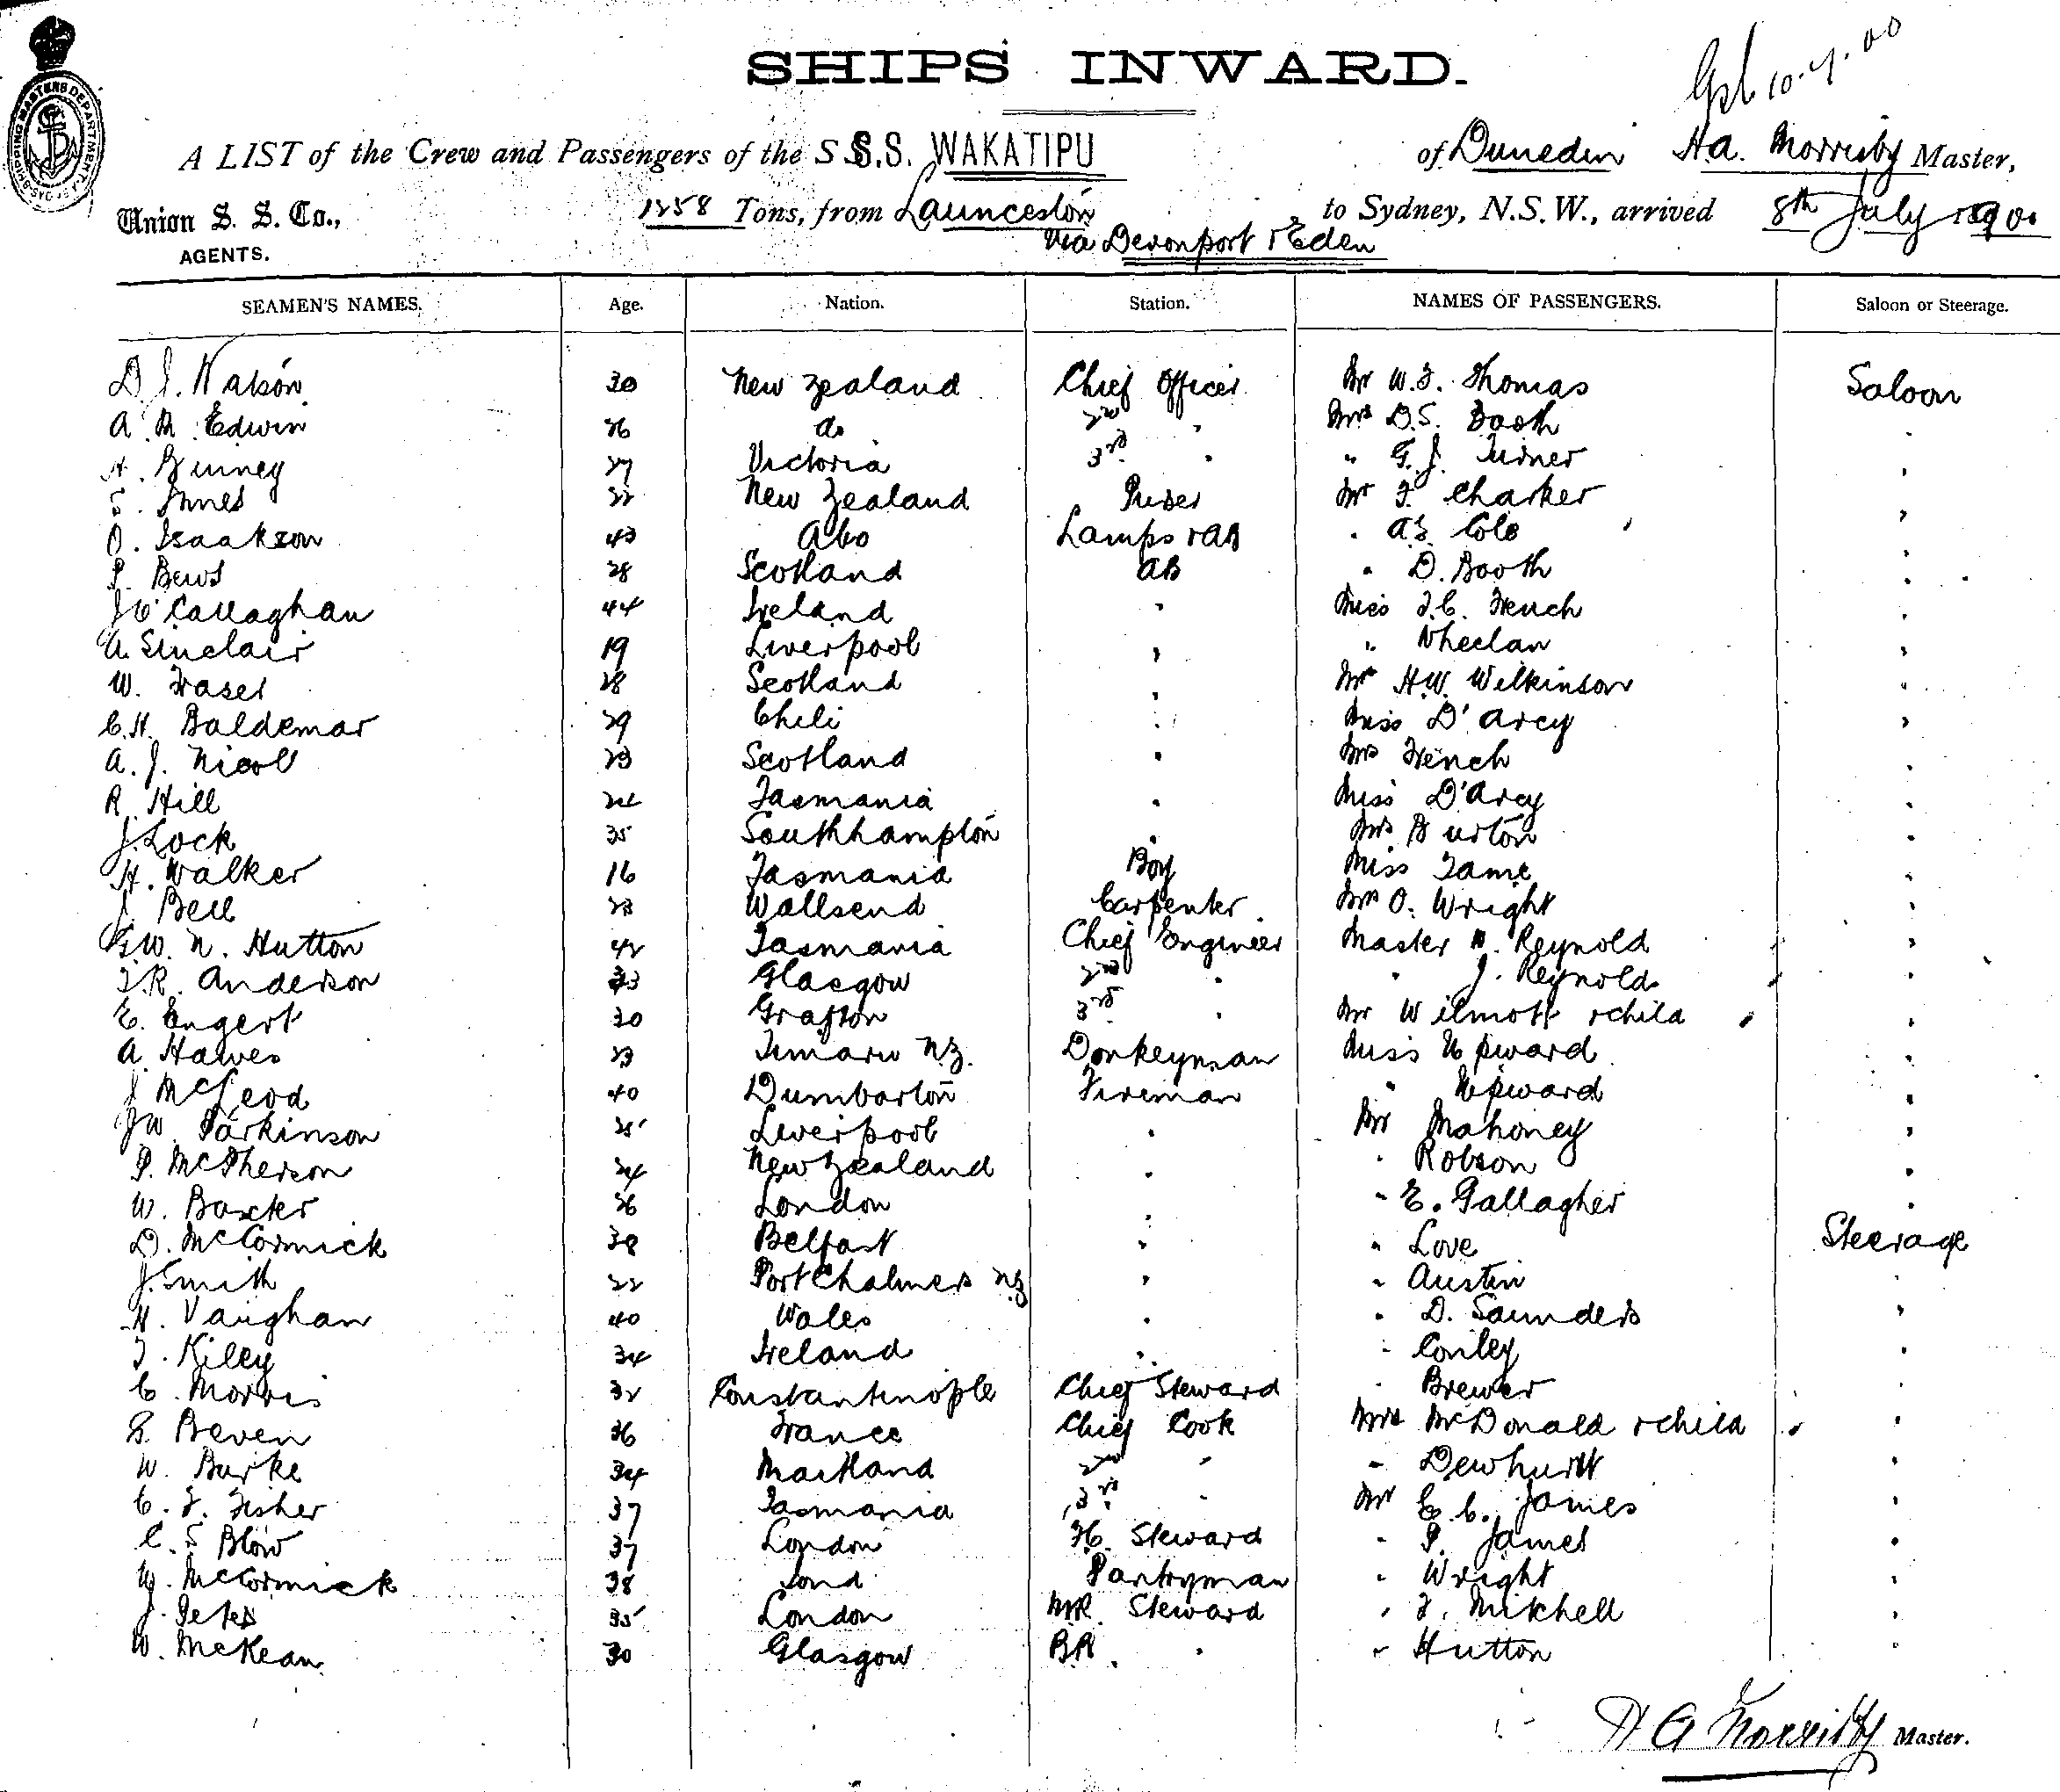 SHIPS INWARD.
10.7.00
A LIST of the Crew and Passengers of the S.S. WAKATIPU of Dunedin H.A. Morrisby Master,
Union S. S. Co.,
AGENTS.
1258 Tons, from Launceston to Sydney, N.S.W., arrived 8th July 1900
via Devonport & Eden
SEAMEN'S NAMES. Age. Nation. Station. NAMES OF PASSENGERS. Saloon or Steerage.
D. J. Watson 30 New Zealand Chief Officer Mr W. J. Thomas Saloon
A. M. Edwin 26 do 2nd " Mrs D.S. Booth "
27 Victoria 3rd " " G. J. Turner "
S. Innes 22 New Zealand Purser Mr F. Charker "
O. Isaakson 43 Abo Lamps & AB " Cole "
P. Bews 28 Scotland AB " D. Booth "
J O'Callaghan 44 Ireland " Miss French "
A. Sinclair 19 Liverpool " " Whelan "
W. Fraser 28 Scotland " Mr H.W. Wilkinson "
C.H. Baldemar 29 Chili " Miss D'Arcy "
A. J. Nicol 23 Scotland " Mrs French "
R. Hill 24 Tasmania " Miss D'Arcy "
J. Lock 35 Southhampton " Mrs Burton "
H. Walker 16 Tasmania Boy Miss Tame "
J. Bell 23 Wallsend Carpenter Mrs O. Wright "
G.W. N. Hutton 42 Tasmania Chief Engineer Master Reynold "
J.R. Anderson 33 Glasgow 2nd " " J. Reynold "
E. Engert 30 Grafton 3rd " Mr Wilmott & child "
A. Hawes 23 Timaru N.Z. Donkeyman Miss Upward "
J McLeod 40 Dumbarton Fireman " Upward "
JW Parkinson 25 Liverpool " Mr Mahoney "
P. McPherson 24 New Zealand " " Robson "
W. Baxter 26 London " " E. Gallagher "
D. McCormick 38 Belfast " " Love Steerage
J. Smith 22 Port Chalmers NZ " " Austin "
H. Vaughan 40 Wales " " D. Saunders "
J. Kiley 34 Ireland " " Conley "
C. Morris 32 Constantinople Chief Steward " Brewer "
Beven 36 France Chief Cook Mrs McDonald & child "
W. Burke 34 Maitland 2nd " " Dewhurst "
C. F. Fisher 37 Tasmania 3rd " Mr E. C. James "
C. S Blow 37 London Steward " P. James "
W. McCormick 38 Lond Pantryman " Wright "
J. Peters 35 London Steward " F. Mitchell "
W. McKean 30 Glasgow B.R. " " Hutton "
H A Morrisby Master.